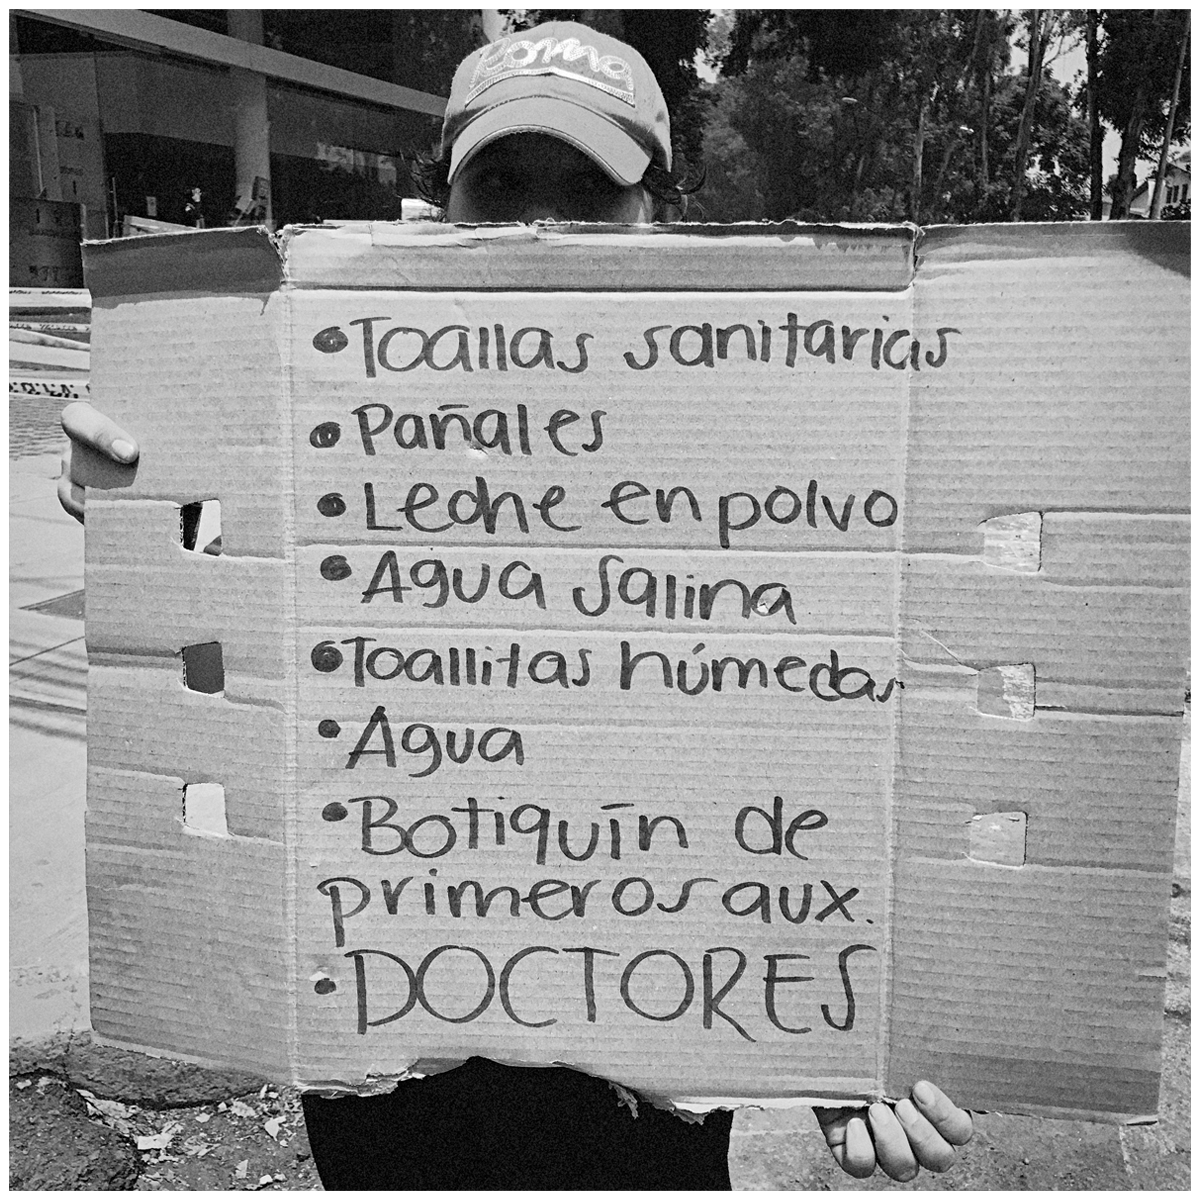 Roma
• Toallas sanitarias
• Pañales
• Leche en polvo
• Agua Salina
• Toallitas húmedas
• Agua
• Botiquín de
primeros aux.
• DOCTORES